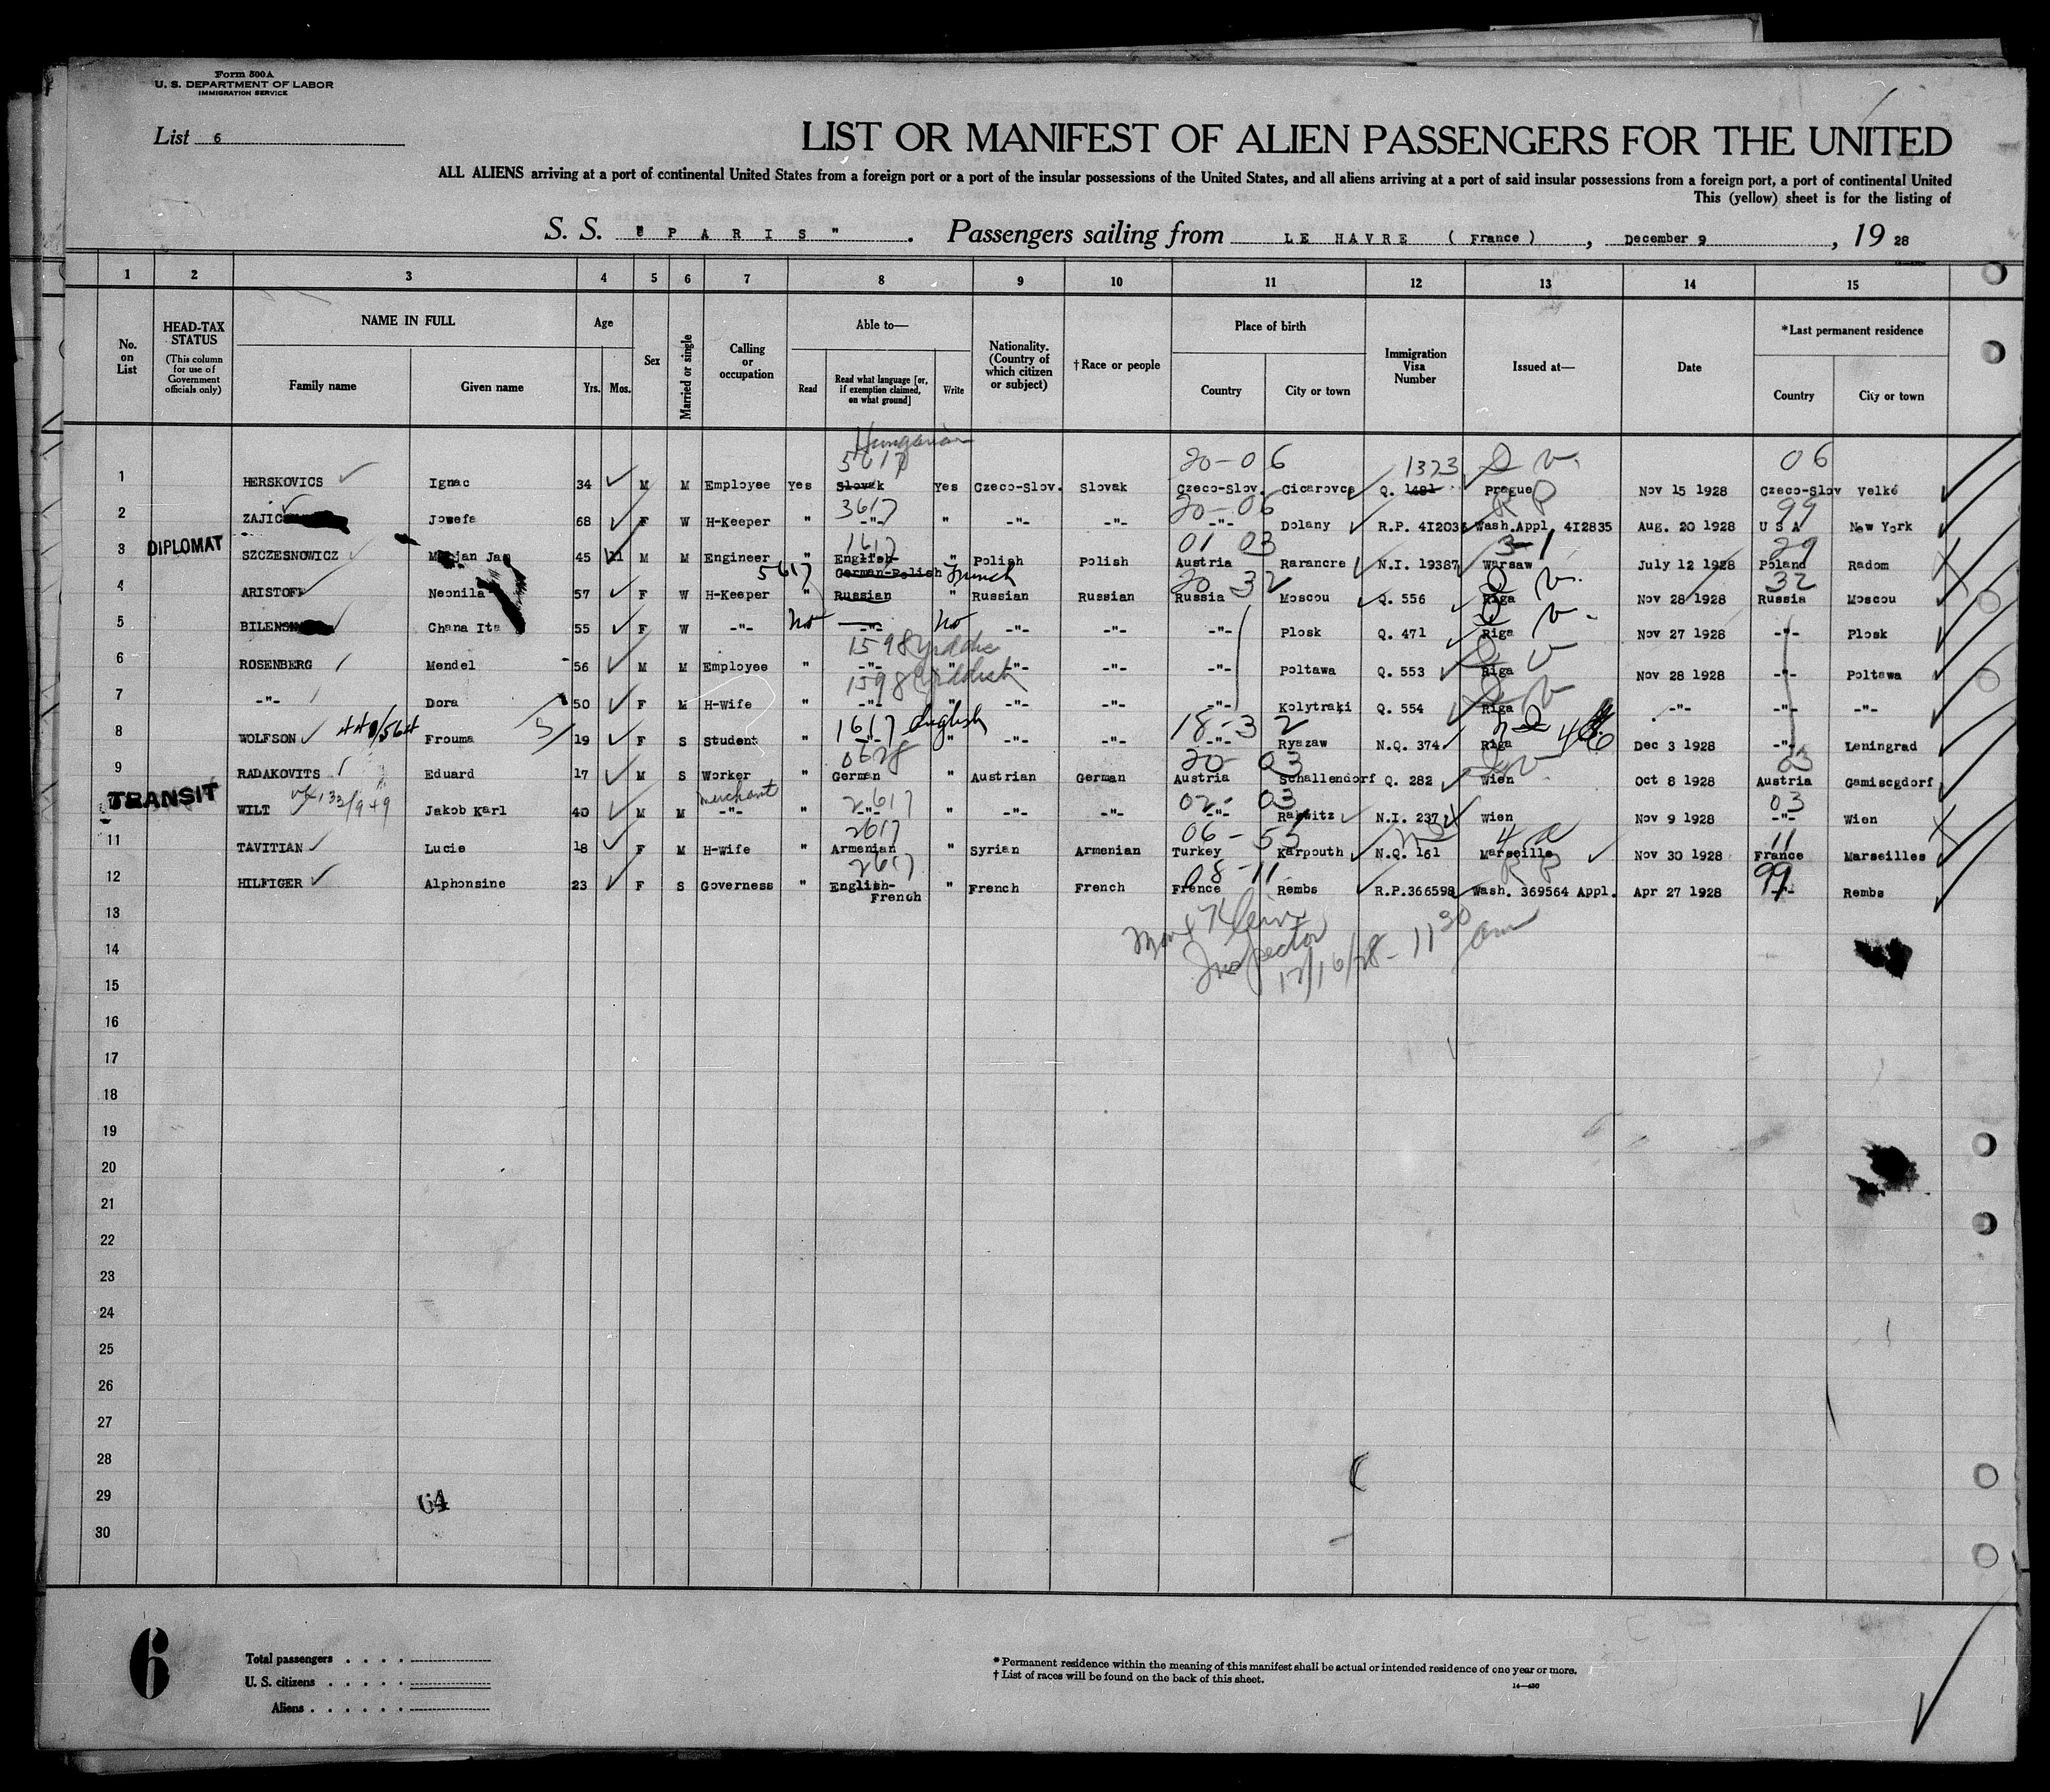 Form 500A
U. S. DEPARTMENT OF LABOR
IMMIGRATION SERVICE
List 6
LIST OR MANIFEST OF ALIEN PASSENGERS FOR THE UNITED
ALL ALIENS arriving at a port of continental United States from a foreign port or a port of the insular possessions of the United States, and all aliens arriving at a port of said insular possessions from a foreign port, a port of continental United
This (yellow) sheet is for the listing of
S. S. "PARIS". Passengers sailing from LE HAVRE (France), December 9, 19 28
1 2 3 4 5 6 7 8 9 10 11 12 13 14 15
No. on List
HEAD-TAX STATUS
(This column for use of Government officials only)
NAME IN FULL
Family name Given name
Age
Yrs. Mos.
Sex
Married or single
Calling or occupation
Able to—
Read Read what language [or, if exemption claimed, on what ground] Write
Nationality. (Country of which citizen or subject)
†Race or people
Place of birth
Country City or town
Immigration Visa Number
Issued at—
Date
*Last permanent residence
Country City or town
Hungarian
5617 20-06 1323 06
1 HERSKOVICS Ignac 34 M M Employee Yes Slovak Yes Czeco-Slov. Slovak Czeco-Slov. Cicarovce Q. Prague Nov 15 1928 Czeco-Slov Velké
3617 20-06 RP 99
2 Josefa 68 F W H-Keeper " -"- " -"- -"- -"- Dolany R.P. Wash.Appl. 412835 Aug. 20 1928 U S A New York
1617 01 03 3-1 29
3 DIPLOMAT SZCZESNOWICZ 45 11 M M Engineer " English- German-Polish " Polish Polish Austria Rarancre N.I. 19387 Warsaw July 12 1928 Poland Radom
5617 French 20 32 32
4 ARISTOFF Neonila 57 F W H-Keeper " Russian " Russian Russian Russia Moscou Q. 556 Riga Nov 28 1928 Russia Moscou
5 Chana Ita 55 F W -"- No -"- No -"- -"- -"- Plosk Q. 471 Riga Nov 27 1928 -"- Plosk
1598 Yiddish
6 ROSENBERG Mendel 56 M M Employee " -"- " -"- -"- -"- Poltawa Q. 553 Riga Nov 28 1928 -"- Poltawa
1598 Yiddish
7 -"- Dora 50 F M H-Wife " -"- " -"- -"- -"- Kolytraki Q. 554 Riga -"- -"- -"-
1617 English 18-32
8 WOLFSON Frouma 19 F S Student " -"- " -"- -"- -"- Ryazaw N.Q. 374 Riga Dec 3 1928 -"- Leningrad
0628 20-03 03
9 RADAKOVITS Eduard 17 M S Worker " German " Austrian German Austria Schallendorf Q. 282 Wien Oct 8 1928 Austria Gamiscgdorf
merchant 2617 02-03 03
TRANSIT WILT Jakob Karl 40 M M -"- " -"- " -"- -"- -"- N.I. 237 Wien Nov 9 1928 -"- Wien
2617 06-55 11
11 TAVITIAN Lucie 18 F M H-Wife " Armenian " Syrian Armenian Turkey Karpouth N.Q. 161 Marseille Nov 30 1928 France Marseilles
2617 08-11 RP 99
12 HILFIGER Alphonsine 23 F S Governess " English- French " French French Frence Rembs R.P.366598 Wash. 369564 Appl. Apr 27 1928 -"- Rembs
13
Klein
14
Inspector
12/16/28- 11 30 am
15
16
17
18
19
20
21
22
23
24
25
26
27
28
29
64
30
6
Total passengers
U. S. citizens
Aliens
* Permanent residence within the meaning of this manifest shall be actual or intended residence of one year or more.
† List of races will be found on the back of this sheet.
14—430